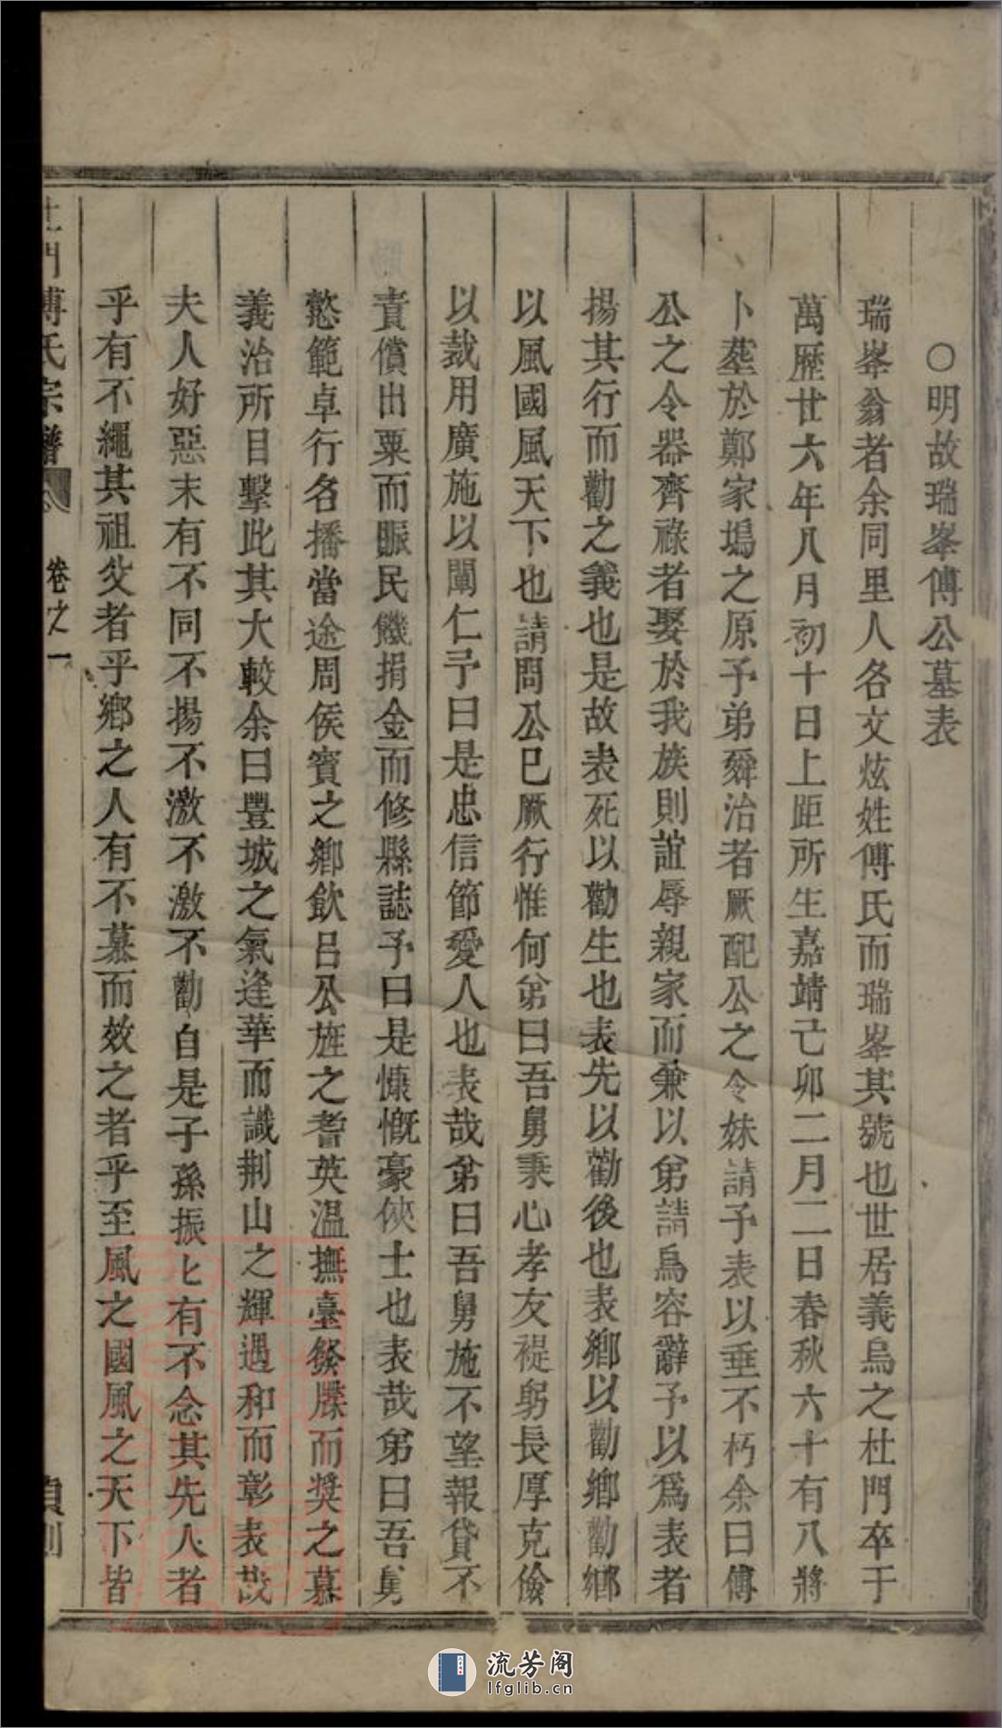 ○明故瑞峯傅公墓表
瑞峯翁者余同里人各文炫姓傅氏而瑞峯其號也世居義烏之杜門卒于
萬歷廿六年八月初十日上距所生嘉靖己卯二月二日春秋六十有八將
卜塟於鄭家塢之原予弟舜治者厥配公之令妹請予表以垂不朽余曰傅
公之令器齊祿者娶於我族則誼辱親家而兼以弟請烏容辭予以爲表者
揚其行而勸之義也是故表死以勸生也表先以勸後也表鄉以勸鄉勸鄉
以風國風天下也請問公巳厥行惟何弟曰吾舅秉心孝友褆躬長厚克儉
以裁用廣施以闡仁予曰是忠信節愛人也表哉弟曰吾舅施不望報貸不
責償出粟而賑民饑捐金而修縣誌予曰是慷慨豪俠士也表哉弟曰吾舅
懿範卓行名播當途周侯賓之鄉飲呂公旌之耆英温撫臺發牒而奬之慕
義治所目擊此其大較余曰豐城之氣逢華而識荆山之輝遇和而彰表哉
夫人好惡末有不同不揚不激不激不勸自是子孫振匕有不念其先人者
乎有不繩其祖父者乎鄉之人有不慕而效之者乎至風之國風之天下皆
杜門傅氏宗譜
卷之一
流芳阁
lfglib.cn